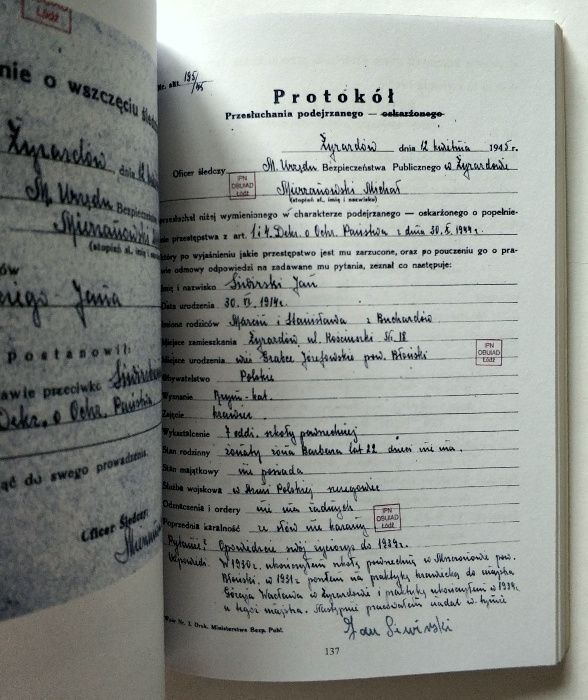 Łódź
nie o wszczęciu śledz
Żyrardów dnia 12
M. Urzędu Bezpieczeń
Mierzanowski
(stopień sł. imię i nazwisko)
Jana
postanowił:
przeciwko Siwirski
Dekr. o Ochr. Państwa
do swego prowadzenia.
Oficer Śledczy
Nr. akt. 195/45
Protokół
Przesłuchania podejrzanego — oskarżonego
Żyrardów dnia 12 kwietnia 1945 r.
Oficer śledczy M. Urzędu Bezpieczeństwa Publicznego w Żyrardowie
IPN OBUIAD Łódź
Mierzanowski Michał
(stopień sł., imię i nazwisko)
przesłuchał niżej wymienionego w charakterze podejrzanego — oskarżonego o popełnie-
nie przestępstwa z art. 1 i 4 Dekr. o Ochr. Państwa z dnia 30.X.1944 r.
który po wyjaśnieniu jakie przestępstwo jest mu zarzucone, oraz po pouczeniu go o pra-
wie odmowy odpowiedzi na zadawane mu pytania, zeznał co następuje:
Imię i nazwisko Siwirski Jan
Data urodzenia 30. VI. 1914 r.
Imiona rodziców Marcin i Stanisława z Buchardów
Miejsce zamieszkania Żyrardów, ul. Kościuszki Nr. 18
IPN OBUIAD Łódź
Miejsce urodzenia wieś Grabce Józefowskie pow. Błoński
Obywatelstwo Polskie
Wyznanie Rzym-kat.
Zajęcie krawiec
Wykształcenie 7 oddz. szkoły powszechnej
Stan rodzinny żonaty żona Barbara lat 22 dzieci nie ma.
Stan majątkowy nie posiada
Służba wojskowa w Armii Polskiej
Odznaczenia i ordery nie ma żadnych
IPN OBUIAD Łódź
Poprzednia karalność ze słów nie karany
Pytanie? Opowiedzcie swój życiorys do 1939 r.
Odpowiedź. W 1930 r. ukończyłem szkołę powszechną w Mszczonowie pow.
Błoński, w 1931 r. poszłem na praktykę krawiecką do majstra
Wacława w Żyrardowie i praktykę ukończyłem w 1934 r.
u tegoż majstra. Następnie pracowałem nadal w tymże
Jan Siwirski
Wzór Nr. 2. Druk. Ministerstwa Bezp. Publ.
137